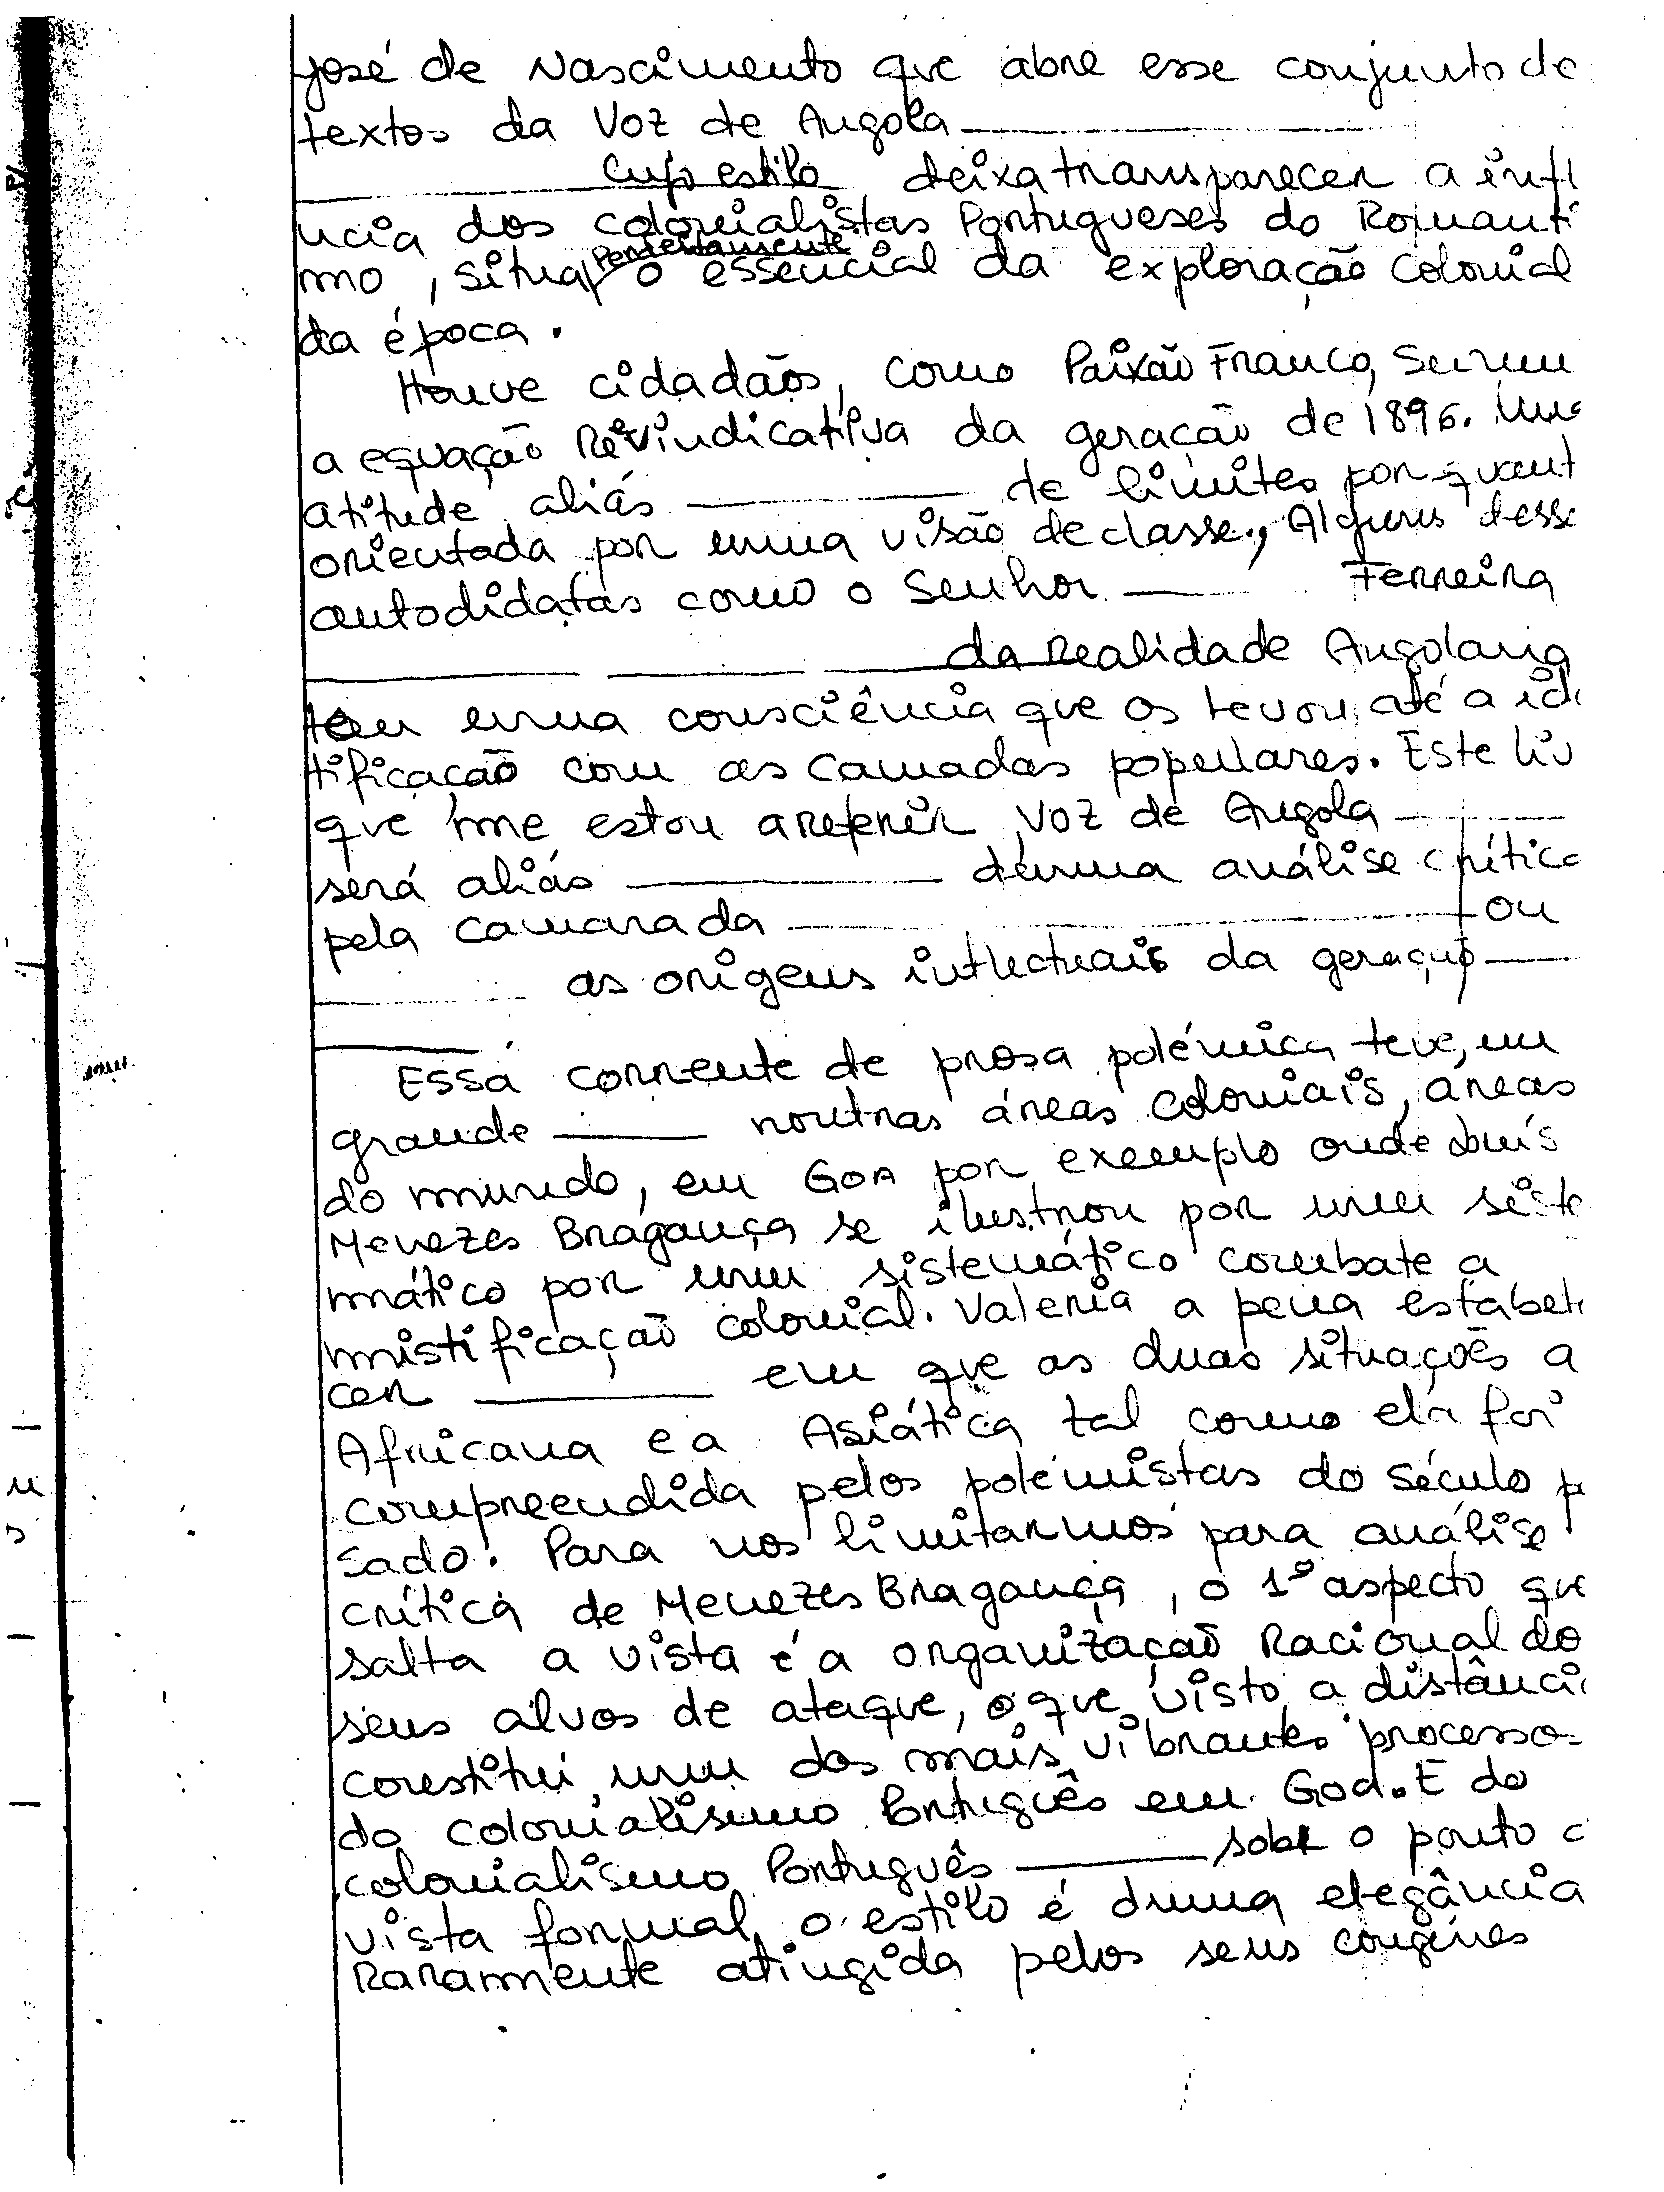 José de Nascimento que abre esse conjunto de
textos da Voz de Angola
cujo estilo deixa transparecer a infl
ncia dos colonialistas Portugueses do Romanti
mo, situa perfeitamente o essencial da exploração colonial
da época.
Houve cidadãos, como Paixão Franco,
a equação Reivindicativa da geração de 1896. Uma
atitude aliás de limites por quant
orientada por uma visão de classe, Alguns desse
autodidatas como o Senhor Ferreira
da Realidade Angolana
uma consciência que os levou até a ide
tificação com as camadas populares. Este liv
que me estou a referir Voz de Angola
será aliás duma análise crítica
pela camarada ou
as origens intlectuais da geração
Essa corrente de prosa polémica teve, um
grande noutras áreas coloniais, áreas
do mundo, em GOA por exemplo onde Luís
Menezes Bragança se ilustrou por um siste
mático por um sistemático combate a
mistificação colonial. Valeria a pena estabele
cer em que as duas situações a
Africana e a Asiática tal como ela foi
compreendida pelos polémistas do século p
sado. Para nos limitarmos para análise
crítica de Menezes Bragança, o 1º aspecto que
salta a vista é a organização Racional do
seus alvos de ataque, o que visto a distânci
constitui um dos mais vibrantes processos
do colonialismo Português em Goa. E do
colonialismo Português sobre o ponto d
vista formal o estilo é duma elegância
Raramente atingida pelos seus congéres